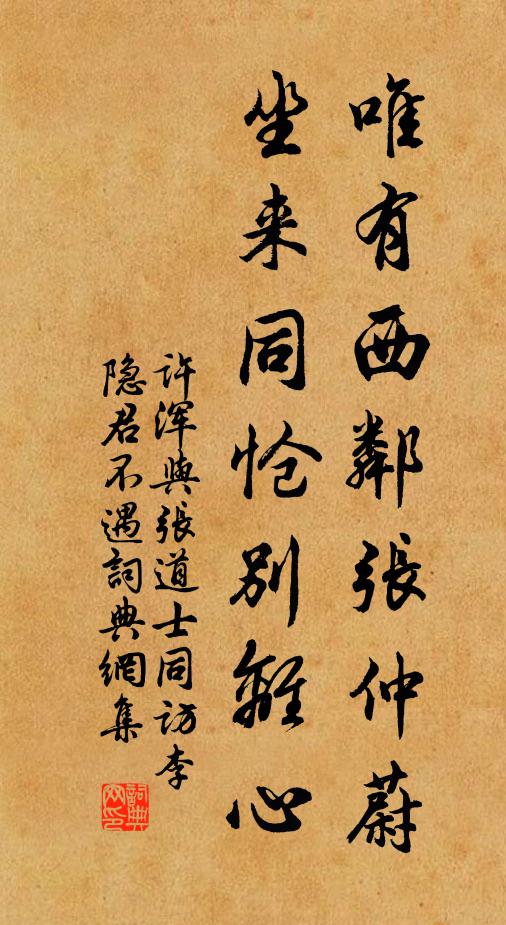 唯有西鄰張仲蔚
坐来同怆別離心
许渾與張道士同访李
隐君不遇詞典網集
詞典网印